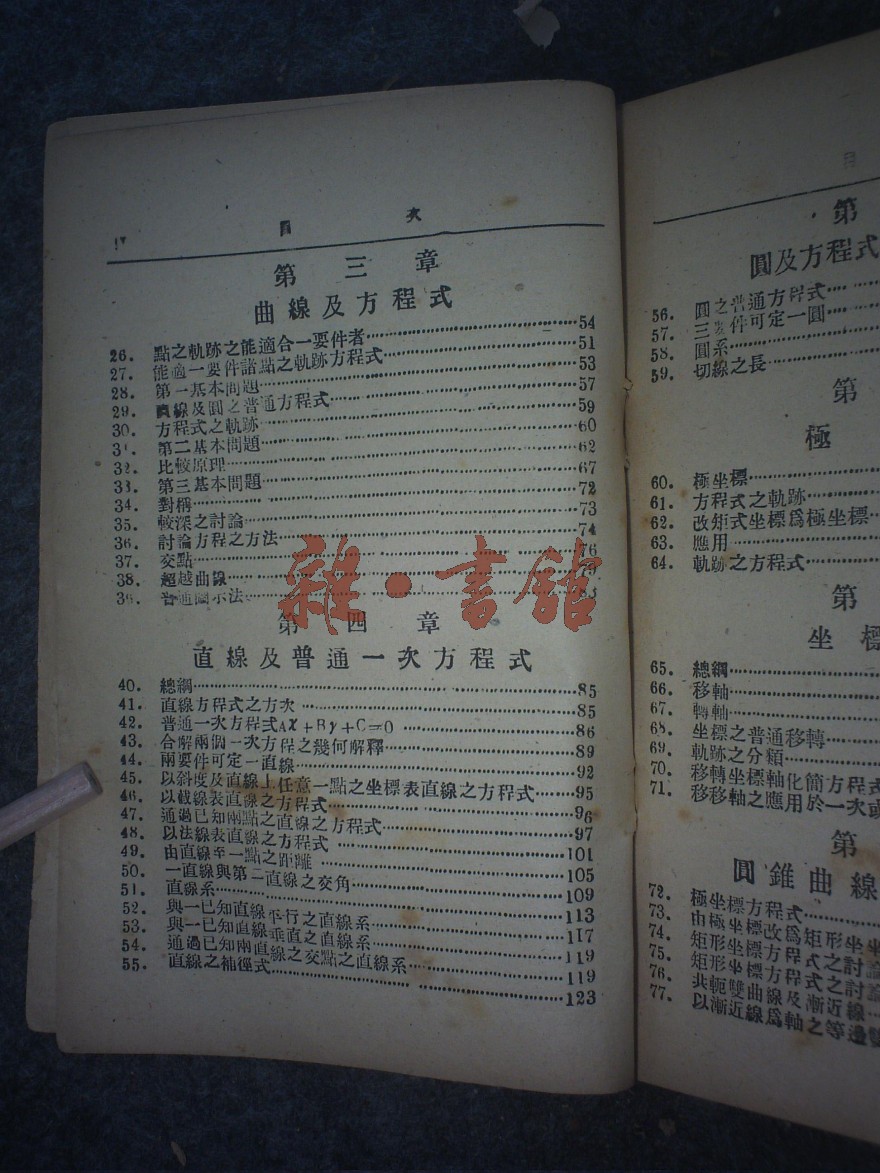 目 次
第三章
曲線及方程式
26. 點之軌跡之能適合一要件者 54
27. 能適一要件諸點之軌跡方程式 51
28. 第一基本問題 53
29. 直線及圓之普通方程式 57
30. 方程式之軌跡 59
31. 第二基本問題 60
32. 比較原理 62
33. 第三基本問題 67
34. 對稱 72
35. 較深之討論 73
36. 討論方程之方法 74
37. 交點 76
38. 超越曲線 79
39. 普通圖示法 83
第四章
直線及普通一次方程式
40. 總綱 85
41. 直線方程式之方次 85
42. 普通一次方程式Ax+By+C=0 86
43. 合解兩個一次方程之幾何解釋 89
44. 兩要件可定一直線 92
45. 以斜度及直線上任意一點之坐標表直線之方程式 95
46. 以截線表直線之方程式 96
47. 通過已知兩點之直線之方程式 97
48. 以法線表直線之方程式 101
49. 由直線至一點之距離 105
50. 一直線與第二直線之交角 109
51. 直線系 113
52. 與一已知直線平行之直線系 117
53. 與一已知直線垂直之直線系 119
54. 通過已知兩直線之交點之直線系 119
55. 直線之補徑式 123
雜·書館
目
第
圓及方程式
56. 圓之普通方程式
57. 三要件可定一圓
58. 圓系
59. 切線之長
第
極
60. 極坐標
61. 方程式之軌跡
62. 改矩式坐標爲極坐標
63. 應用
64. 軌跡之方程式
第
坐標
65. 總綱
66. 移軸
67. 轉軸
68. 坐標之普通移轉
69. 軌跡之分類
70. 移轉坐標軸化簡方程式
71. 移移軸之應用於一次或
第
圓錐曲線
72. 極坐標方程式
73. 由極坐標改爲矩形坐
74. 矩形坐標方程式之討論
75. 矩形坐標方程式之討論
76. 共軛雙曲線及漸近線
77. 以漸近線爲軸之等邊雙